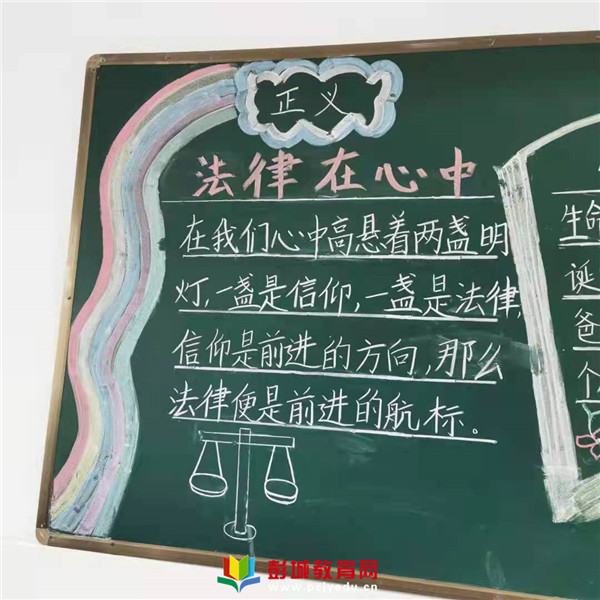 正义
法律在心中
在我们心中高悬着两盏明
灯,一盏是信仰,一盏是法律,
信仰是前进的方向,那么
法律便是前进的航标。
生命
诞
爸
个
彭城教育网
www.pcjyedu.cn